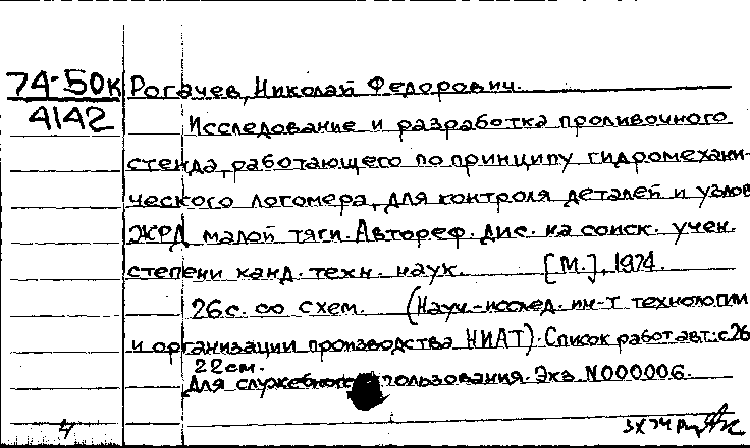 74-50к Рогачев, Николай Федорович.
4142 Исследование и разработка проливочного
стенда, работающего по принципу гидромехани-
ческого логомера, для контроля деталей и узлов
ЖРД малой тяги. Автореф. дис. на соиск. учен.
степени канд. техн. наук. [М.], 1974.
26с. со схем. (Науч.-исслед. ин-т технологии
и организации производства НИАТ). Список работ авт.: с26
22см.
Для служебного пользования. Экз. N000006.
4